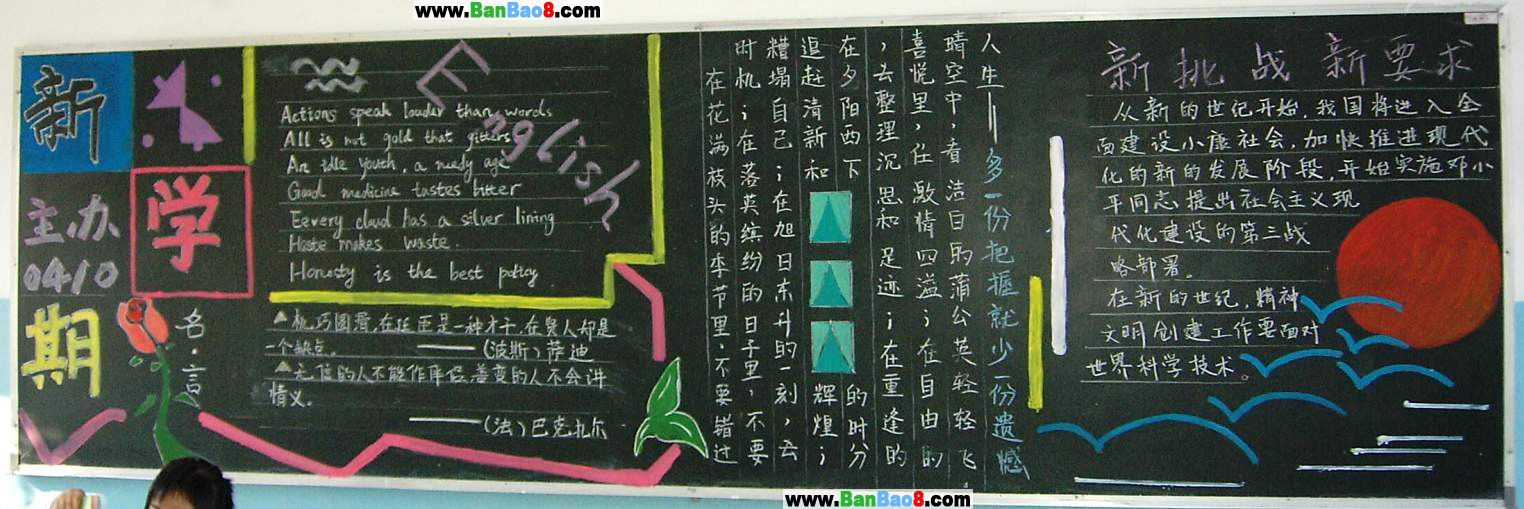 www.BanBao8.com
新
学
期
主办
04.10
English
Actions speak louder than words
All is not gold that gitters
An idle youth, a needy age
Good medicine tastes bitter
Eevery cloud has a silver lining
Haste makes waste.
Honesty is the best policy
名·言
机巧圆滑,在侄臣是一种才干,在贤人却是
一个缺点。
——(波斯)萨迪
无信的人不能作库侣,善变的人不会讲
情义。
——(法)巴克扎尔
人生——多一份把握就少一份遗憾
晴空中,看洁白的蒲公英轻轻飞,
喜悦里,任激情四溢;在自由的
,去整理沉思和足迹;在重逢的
在夕阳西下的时分
追赶清新和辉煌;
糟塌自己;在旭日东升的一刻,去
时机;在落英缤纷的日子里,不要
在花满枝头的季节里,不要错过
新挑战新要求
从新的世纪开始,我国将进入全
面建设小康社会,加快推进现代
化的新的发展阶段,开始实施邓小
平同志提出社会主义现
代化建设的第三战
略部署。
在新的世纪,精神
文明创建工作要面对
世界科学技术。
www.BanBao8.com